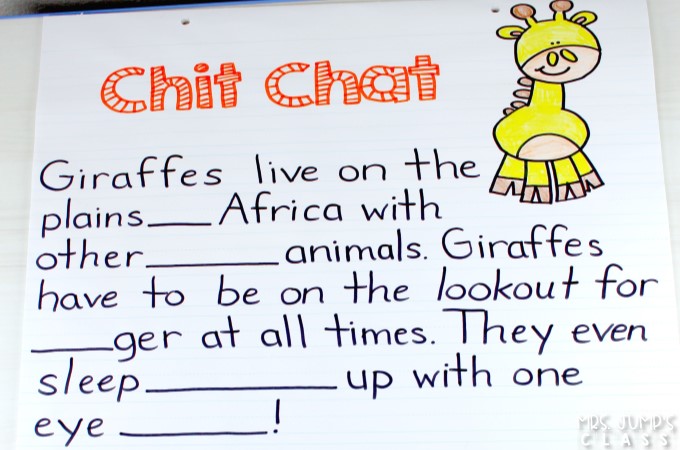 Chit Chat
Giraffes live on the
plains___ Africa with
other_______ animals. Giraffes
have to be on the lookout for
____ger at all times. They even
sleep__________ up with one
eye ________!
MRS. JUMP'S
CLASS